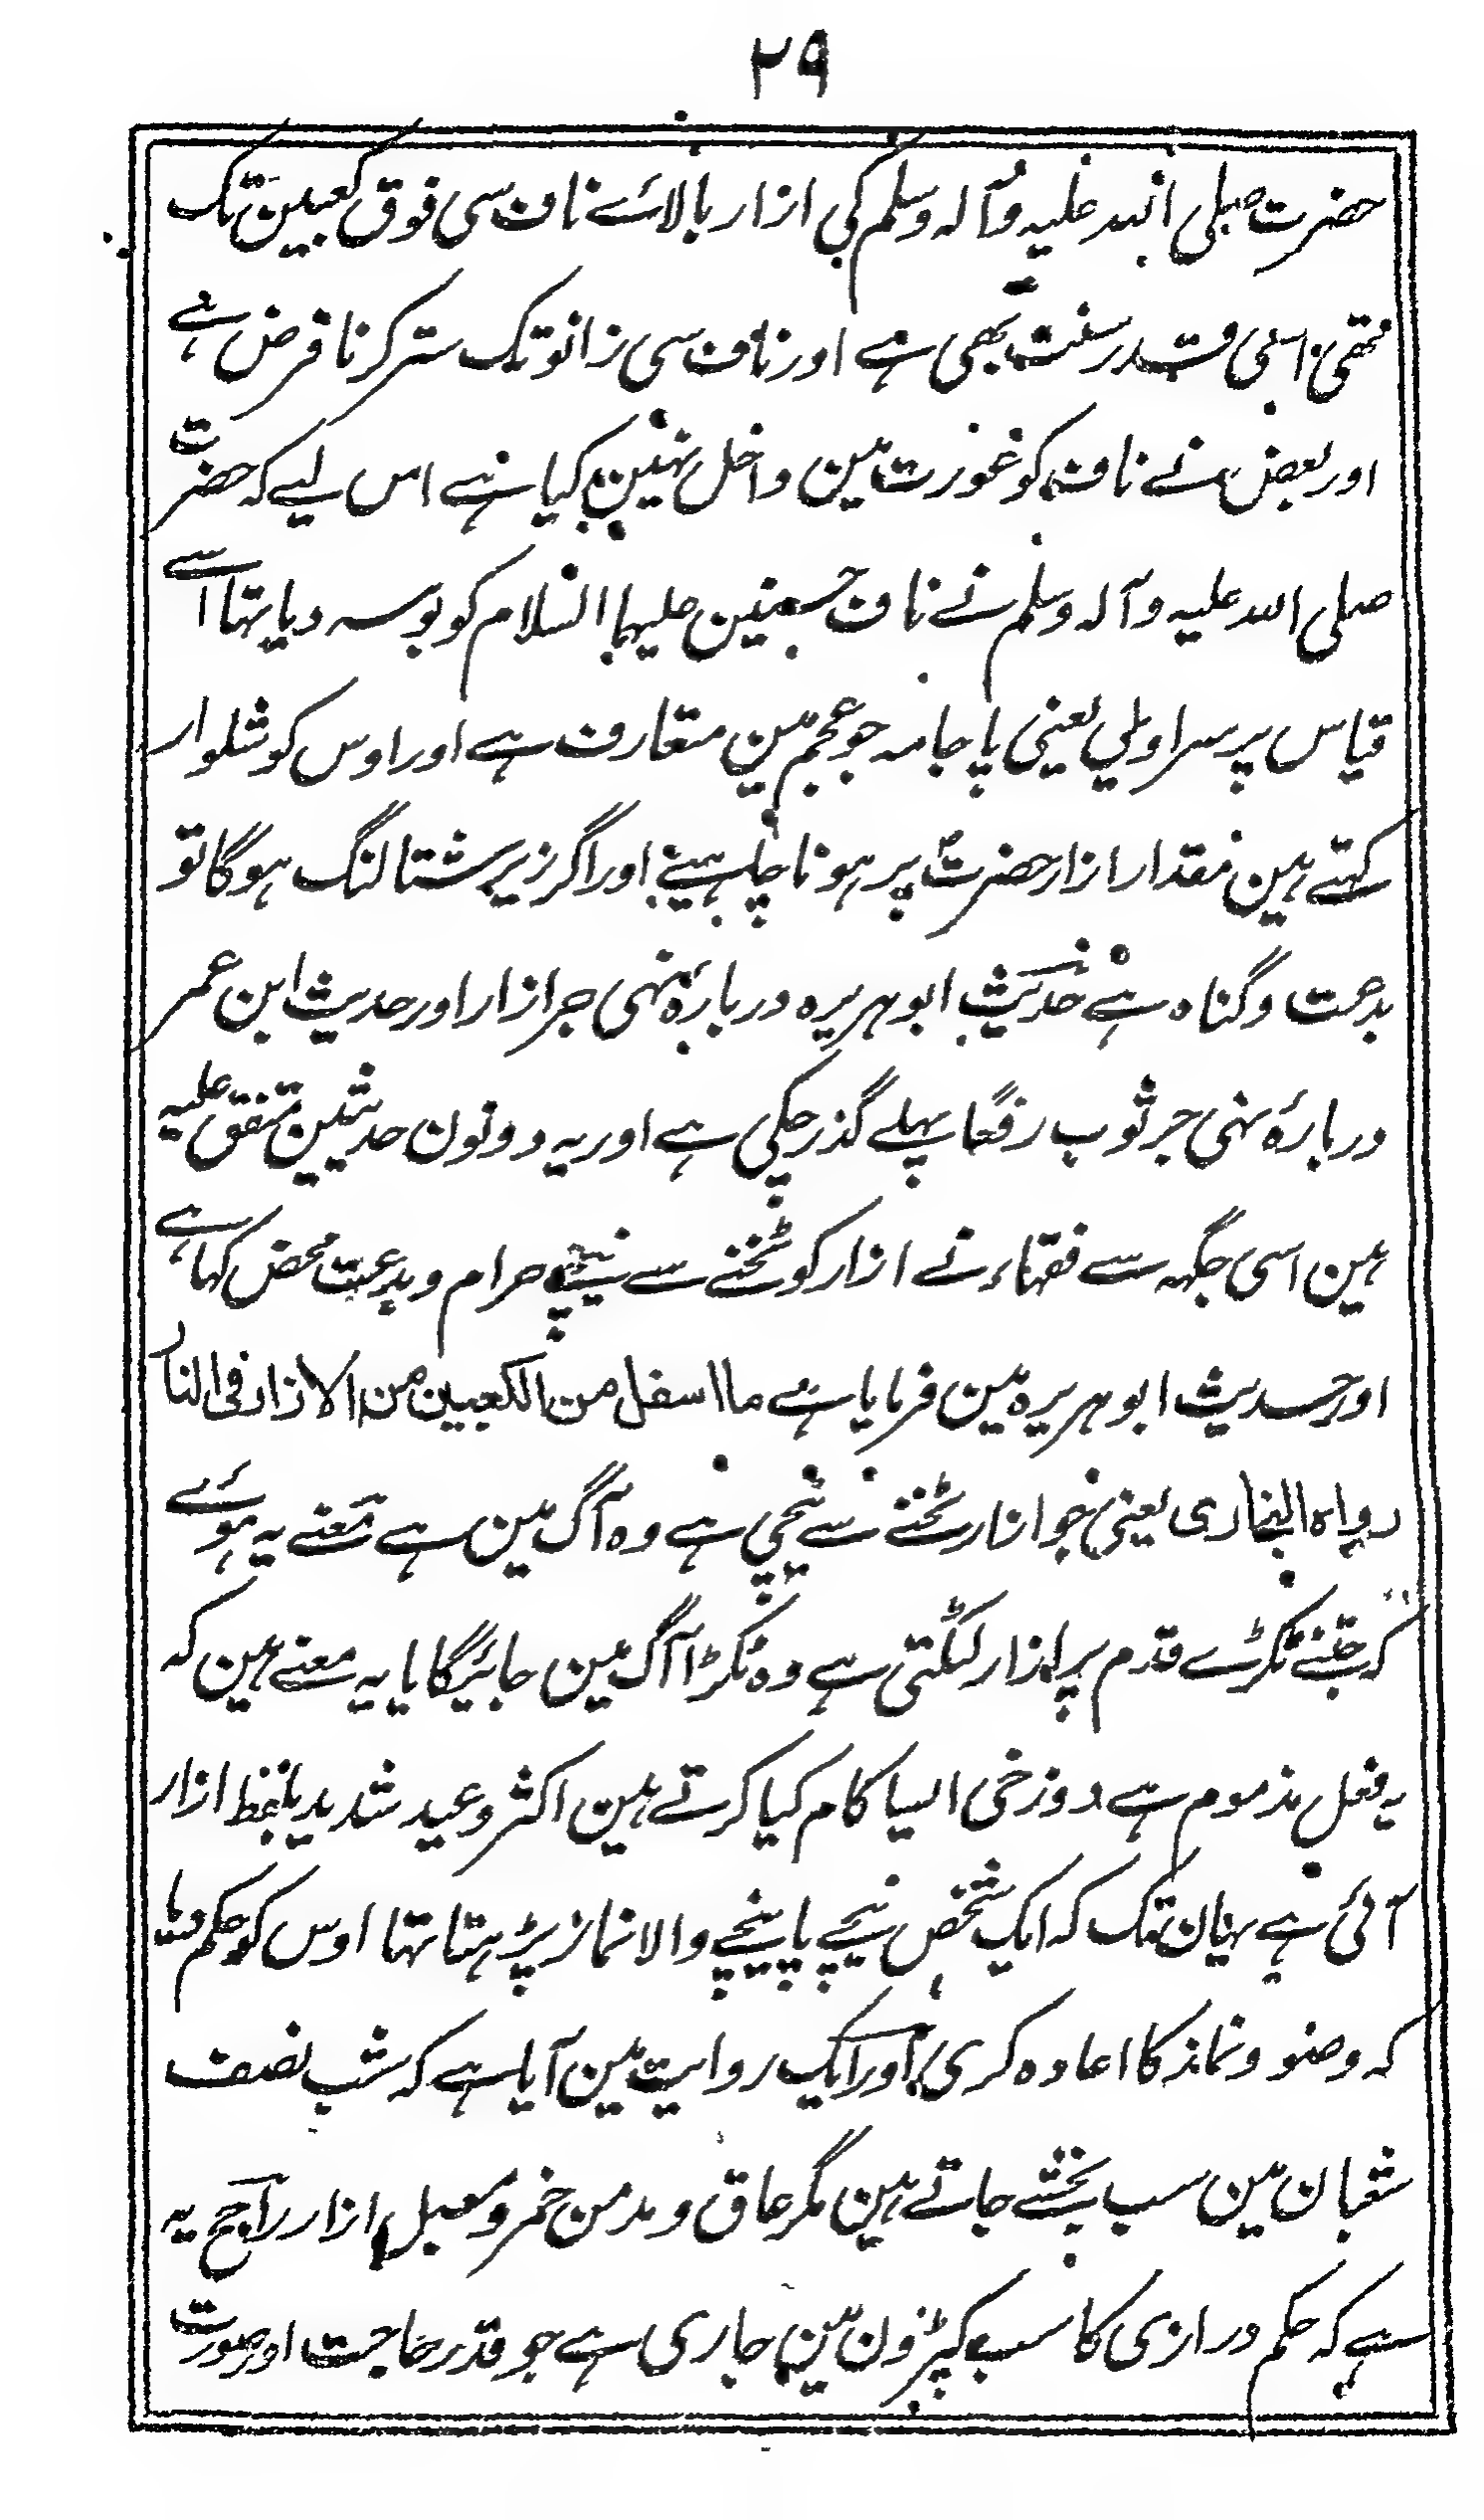 ۲۹
حضرت صلی اللہ علیہ وآلہ وسلم کی ازار بالائے ناف سی فوق کعبین تک
تھی اسی قدر سنت بھی ہے اور ناف سی زانو تک ستر کرنا فرض ہے
اور بعض نے ناف کو عورت مین داخل نہین کیا ہے اس لیے کہ حضرت
صلی اللہ علیہ وآلہ وسلم نے ناف حسنین علیہما السلام کو بوسہ دیا تہا اسے
قیاس پر سراویل یعنی پاجامہ جو عجم مین متعارف ہے اور اوس کو شلوار
کہتے ہین مقدار ازار حضرتؐ پر ہونا چاہیے اور اگر زیر شتالنگ ہوگا تو
بدعت وگناہ ہے حدیث ابوہریرہ دربارۂ نہی جر ازار اور حدیث ابن عمر
دربارۂ نہی جر ثوب رفعًا پہلے گذر چکی ہے اور یہ دونون حدیثین متفق علیہ
ہین اسی جگہہ سے فقہاء نے ازار کو ٹخنے سے نیچے حرام و بدعت محض کہا ہے
اور حدیث ابوہریرہ مین فرمایا ہے ما اسفل من الکعبین من الازار فی النار
رواہ البخاری یعنی جو ازار ٹخنے سے نیچی ہے وہ آگ مین ہے معنے یہ ہوئے
کہ جتنے ٹکڑے قدم پر ازار لٹکتی ہے وہ ٹکڑا آگ مین جائیگا یا یہ معنے ہین کہ
یہ فعل مذموم ہے دوزخی ایسا کام کیا کرتے ہین اکثر وعید شدید بلفظ ازار
آئی ہے یہان تک کہ ایک شخص نیچے پاینچے والا نماز پڑہتا تہا اوس کو حکم دیا
کہ وضو و نماز کا اعادہ کری اور ایک روایت مین آیا ہے کہ شب نصف
شعبان مین سب بخشے جاتے ہین مگر عاق و مدمن خمر و مسبل ازار راجح یہ
ہے کہ حکم درازی کا سب کپڑون مین جاری ہے جو قدر حاجت اور صورت